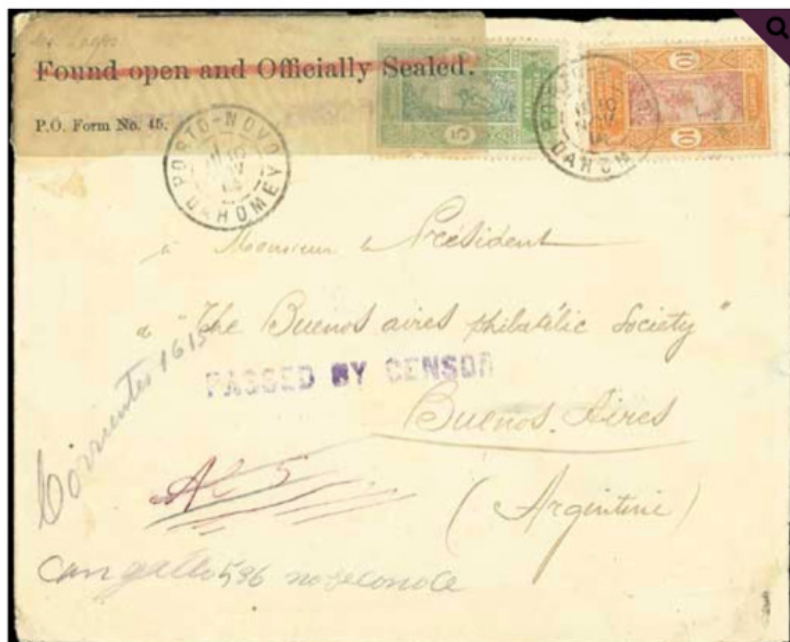 Found open and Officially Sealed.
P.O. Form No. 45.
5
10
10
PORTO-NOVO
DAHOMEY
à Monsieur le Président
"The Buenos aires philatélic Society"
Corrientes 1615
PASSED BY CENSOR
Buenos. Aires
(Argentine)
Cangallo 596 no se conoce